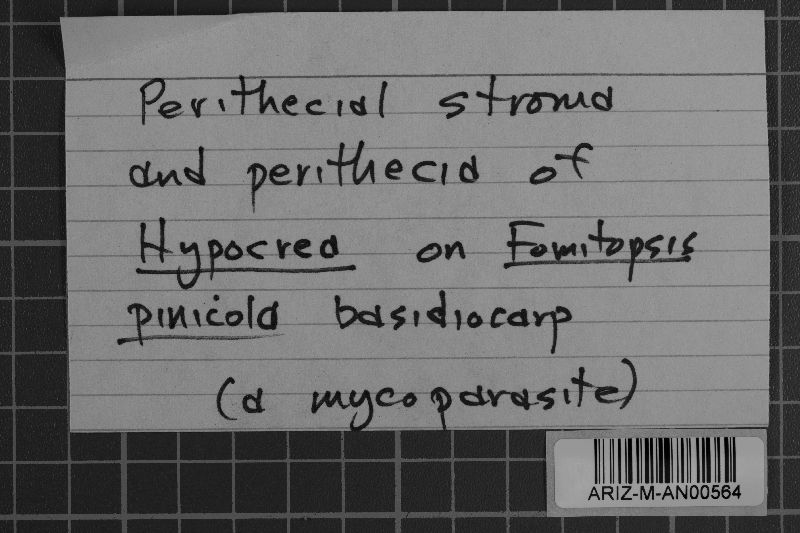 Perithecial stroma
and perithecia of
Hypocrea on Fomitopsis
pinicola basidiocarp
(a mycoparasite)
ARIZ-M-AN00564